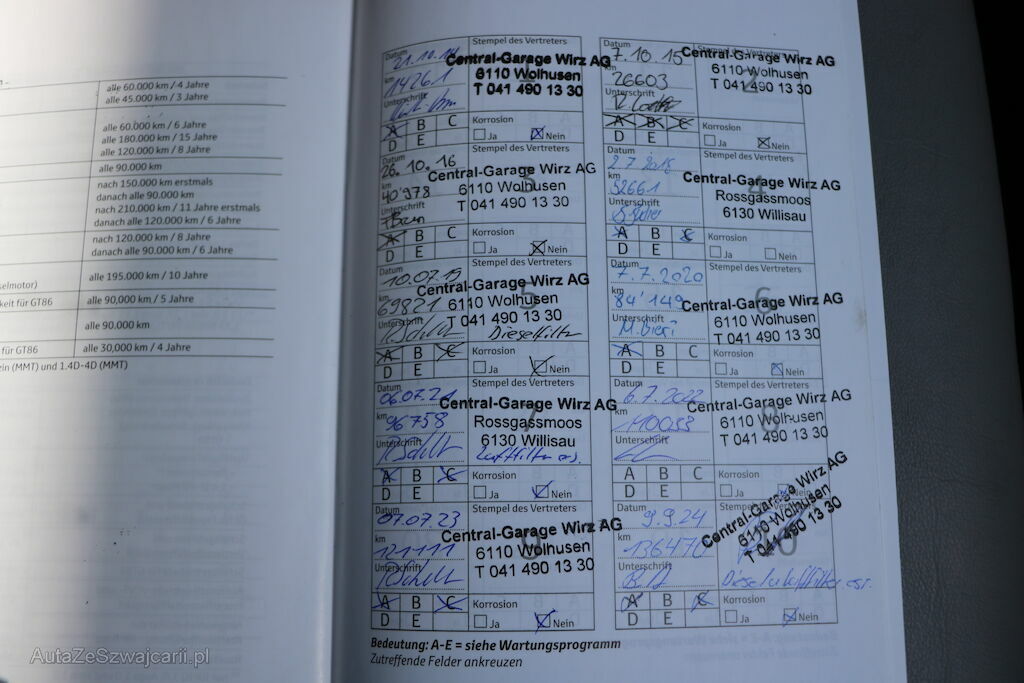 alle 60.000 km / 4 Jahre
alle 45.000 km / 3 Jahre
alle 60.000 km / 6 Jahre
alle 180.000 km / 15 Jahre
alle 120.000 km / 8 Jahre
alle 90.000 km
nach 150.000 km erstmals
danach alle 90.000 km
nach 210.000 km / 11 Jahre erstmals
danach alle 120.000 km / 6 Jahre
nach 120.000 km / 8 Jahre
danach alle 90.000 km / 6 Jahre
alle 195.000 km / 10 Jahre
selmotor)
keit für GT86
alle 90,000 km / 5 Jahre
alle 90.000 km
für GT86
alle 30,000 km / 4 Jahre
zin (MMT) und 1.4D-4D (MMT)
Datum
21.10.14
Stempel des Vertreters
Central-Garage Wirz AG
6110 Wolhusen
T 041 490 13 30
km
14261
Unterschrift
A B C
D E
Korrosion
Ja Nein
Datum
7.10.15
Stempel des Vertreters
2
Central-Garage Wirz AG
6110 Wolhusen
T 041 490 13 30
km
26603
Unterschrift
A B C
D E
Korrosion
Ja Nein
Datum
26.10.16
Stempel des Vertreters
3
Central-Garage Wirz AG
6110 Wolhusen
T 041 490 13 30
km
40'978
Unterschrift
A B C
D E
Korrosion
Ja Nein
Datum
2.7.2018
Stempel des Vertreters
4
Central-Garage Wirz AG
Rossgassmoos
6130 Willisau
km
52661
Unterschrift
A B C
D E
Korrosion
Ja Nein
Datum
10.07.19
Stempel des Vertreters
5
Central-Garage Wirz AG
6110 Wolhusen
T 041 490 13 30
km
69821
Unterschrift
Dieselfilter
A B C
D E
Korrosion
Ja Nein
Datum
7.7.2020
Stempel des Vertreters
6
Central-Garage Wirz AG
6110 Wolhusen
T 041 490 13 30
km
84'149
Unterschrift
A B C
D E
Korrosion
Ja Nein
Datum
06.07.21
Stempel des Vertreters
7
Central-Garage Wirz AG
Rossgassmoos
6130 Willisau
km
96758
Unterschrift
Luftfilter ers.
A B C
D E
Korrosion
Ja Nein
Datum
6.7.2022
Stempel des Vertreters
8
Central-Garage Wirz AG
6110 Wolhusen
T 041 490 13 30
km
110033
Unterschrift
A B C
D E
Korrosion
Ja Nein
Datum
07.07.23
Stempel des Vertreters
9
Central-Garage Wirz AG
6110 Wolhusen
T 041 490 13 30
km
121111
Unterschrift
A B C
D E
Korrosion
Ja Nein
Datum
9.9.24
10
Central-Garage Wirz AG
6110 Wolhusen
T 041 490 13 30
km
136470
Unterschrift
A B C
D E
Korrosion
Ja Nein
Bedeutung: A-E = siehe Wartungsprogramm
Zutreffende Felder ankreuzen
AutaZeSzwajcarii.pl